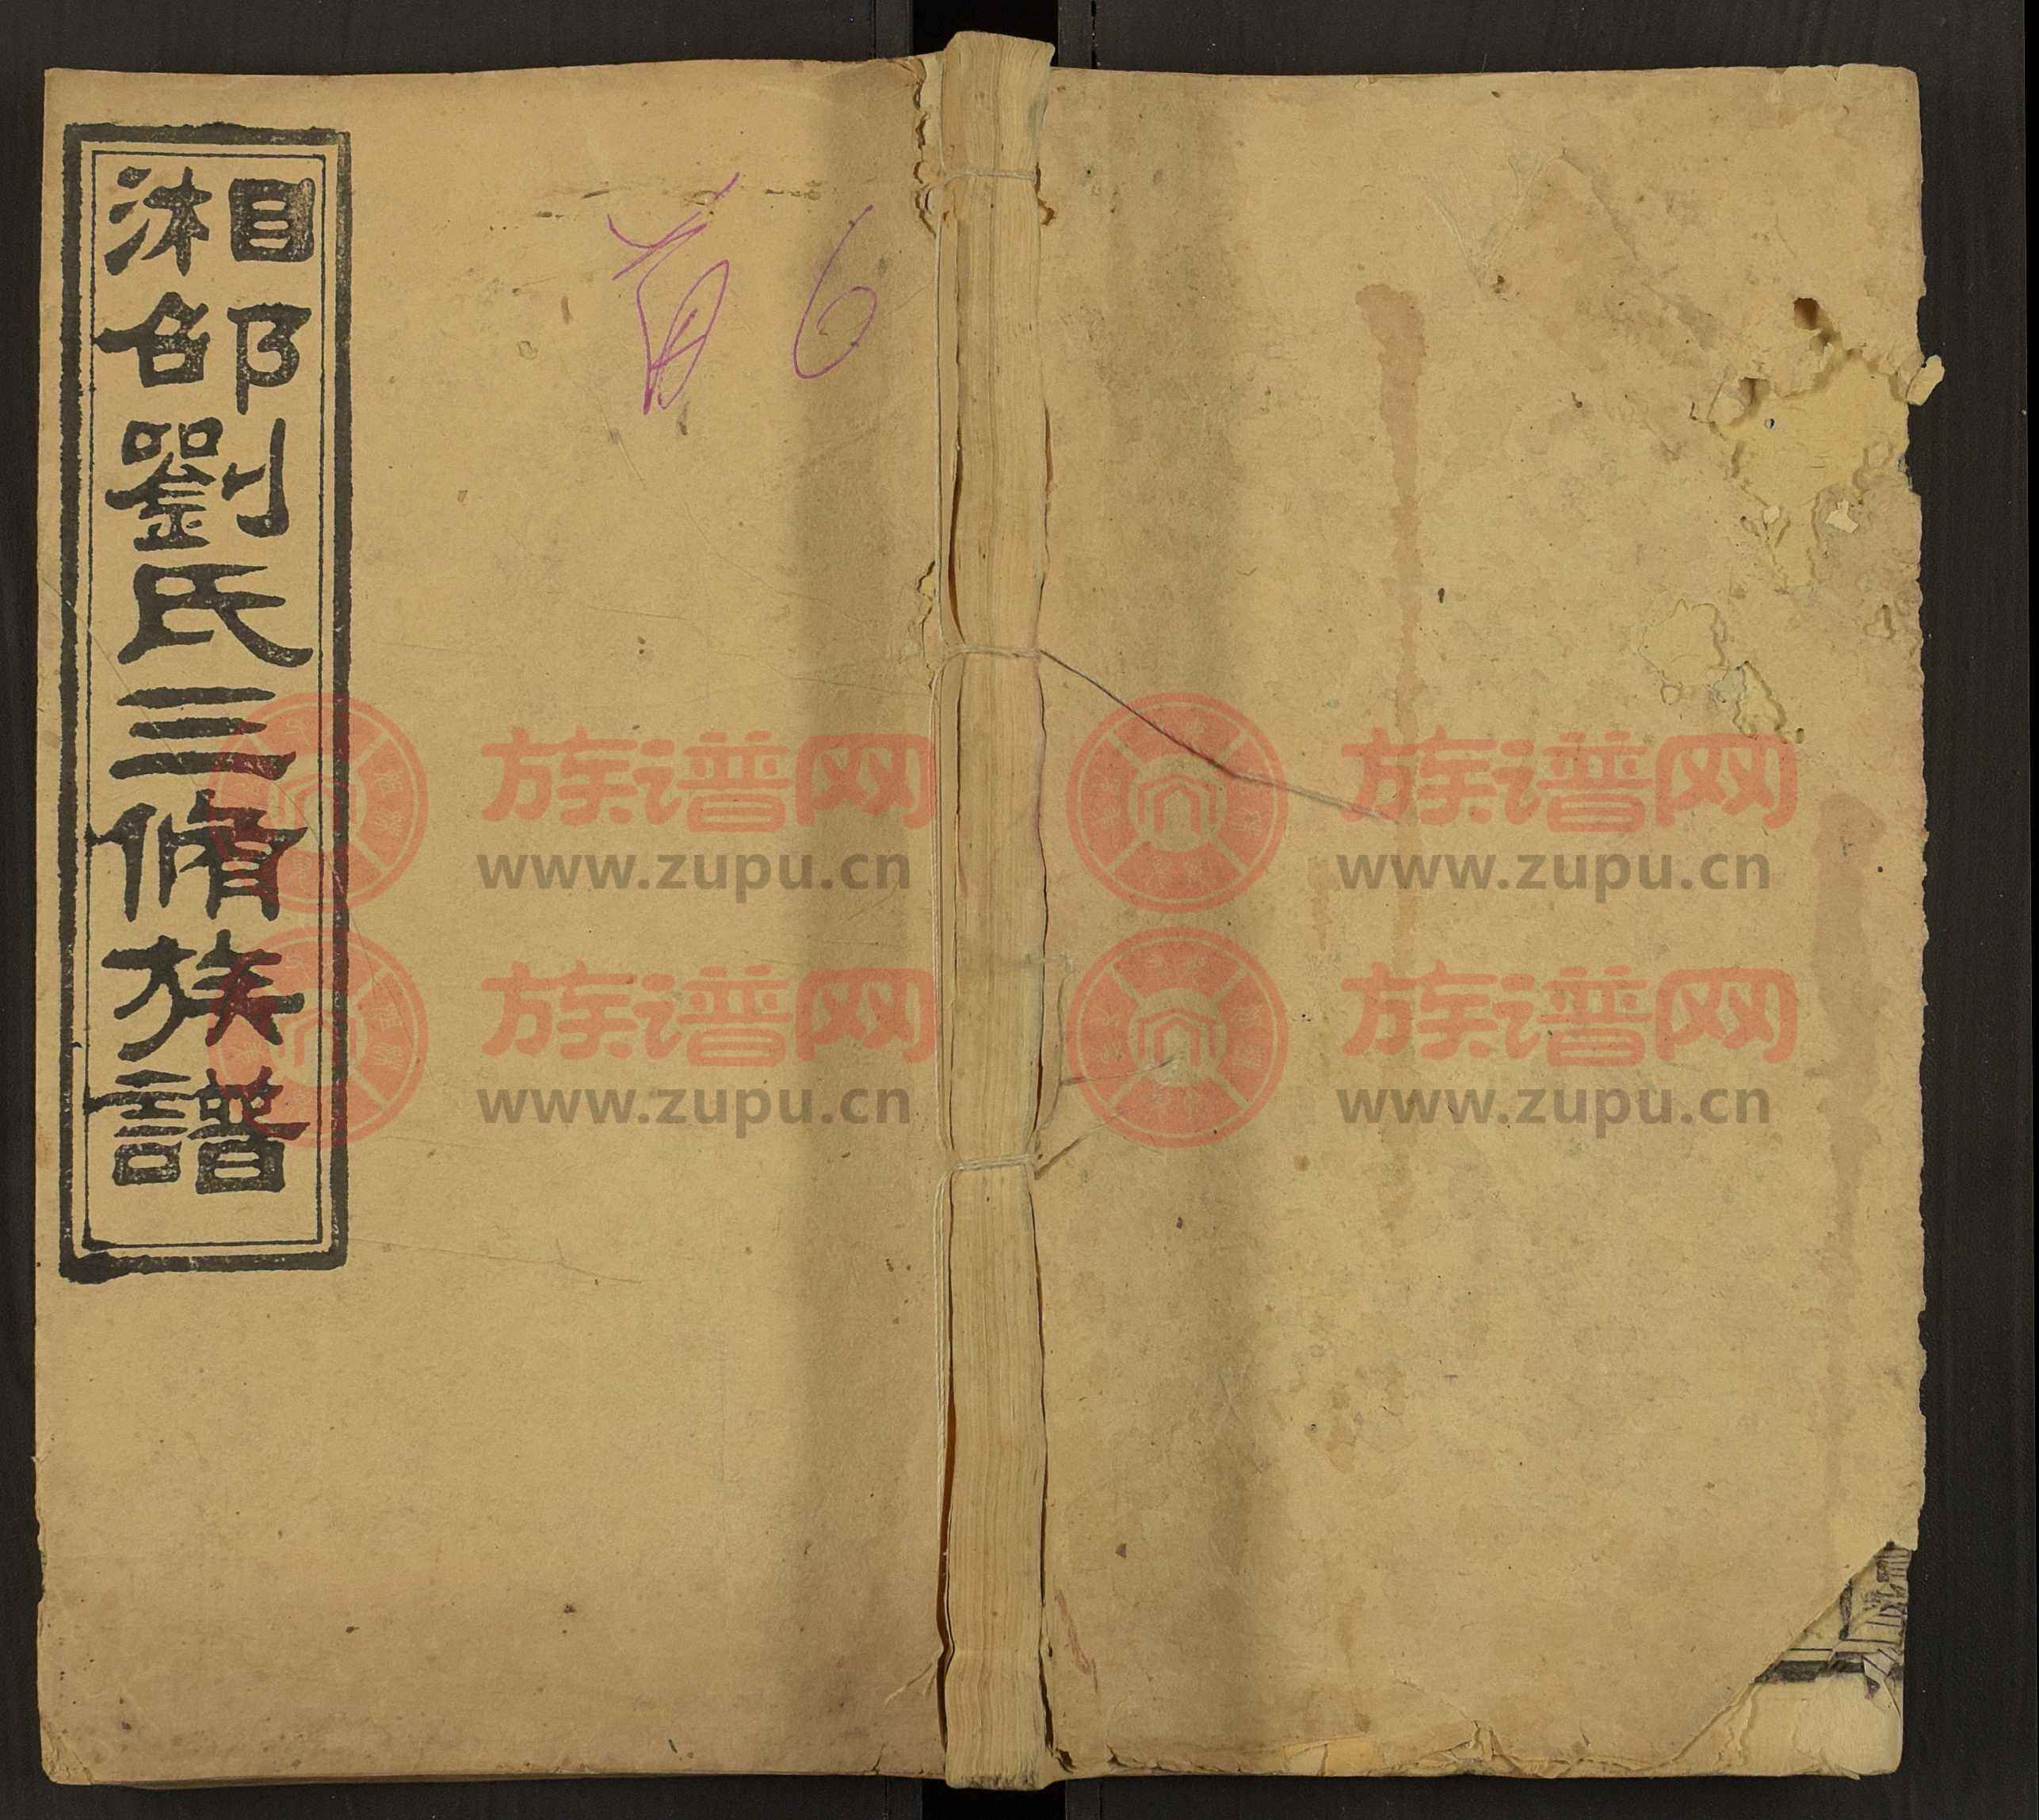 湘邵劉氏三脩族譜
首 6
族谱网
www.zupu.cn
族谱网
www.zupu.cn
族谱网
www.zupu.cn
族谱网
www.zupu.cn